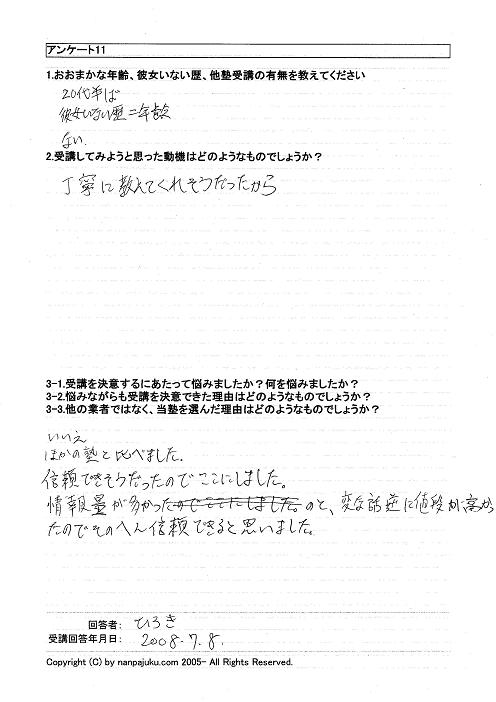 アンケート11
1.おおまかな年齢、彼女いない歴、他塾受講の有無を教えてください
20代半ば
彼女いない歴=年齢
ない.
2.受講してみようと思った動機はどのようなものでしょうか？
丁寧に教えてくれそうだったから
3-1.受講を決意するにあたって悩みましたか？何を悩みましたか？
3-2.悩みながらも受講を決意できた理由はどのようなものでしょうか？
3-3.他の業者ではなく、当塾を選んだ理由はどのようなものでしょうか？
いいえ
ほかの塾と比べました.
信頼できそうだったのでここにしました。
情報量が多かったのでここにしました。のと、変な話逆に値段が高か
たのでそのへん信頼できると思いました。
回答者: ひろき
受講回答年月日: 2008.7.8.
Copyright (C) by nanpajuku.com 2005- All Rights Reserved.